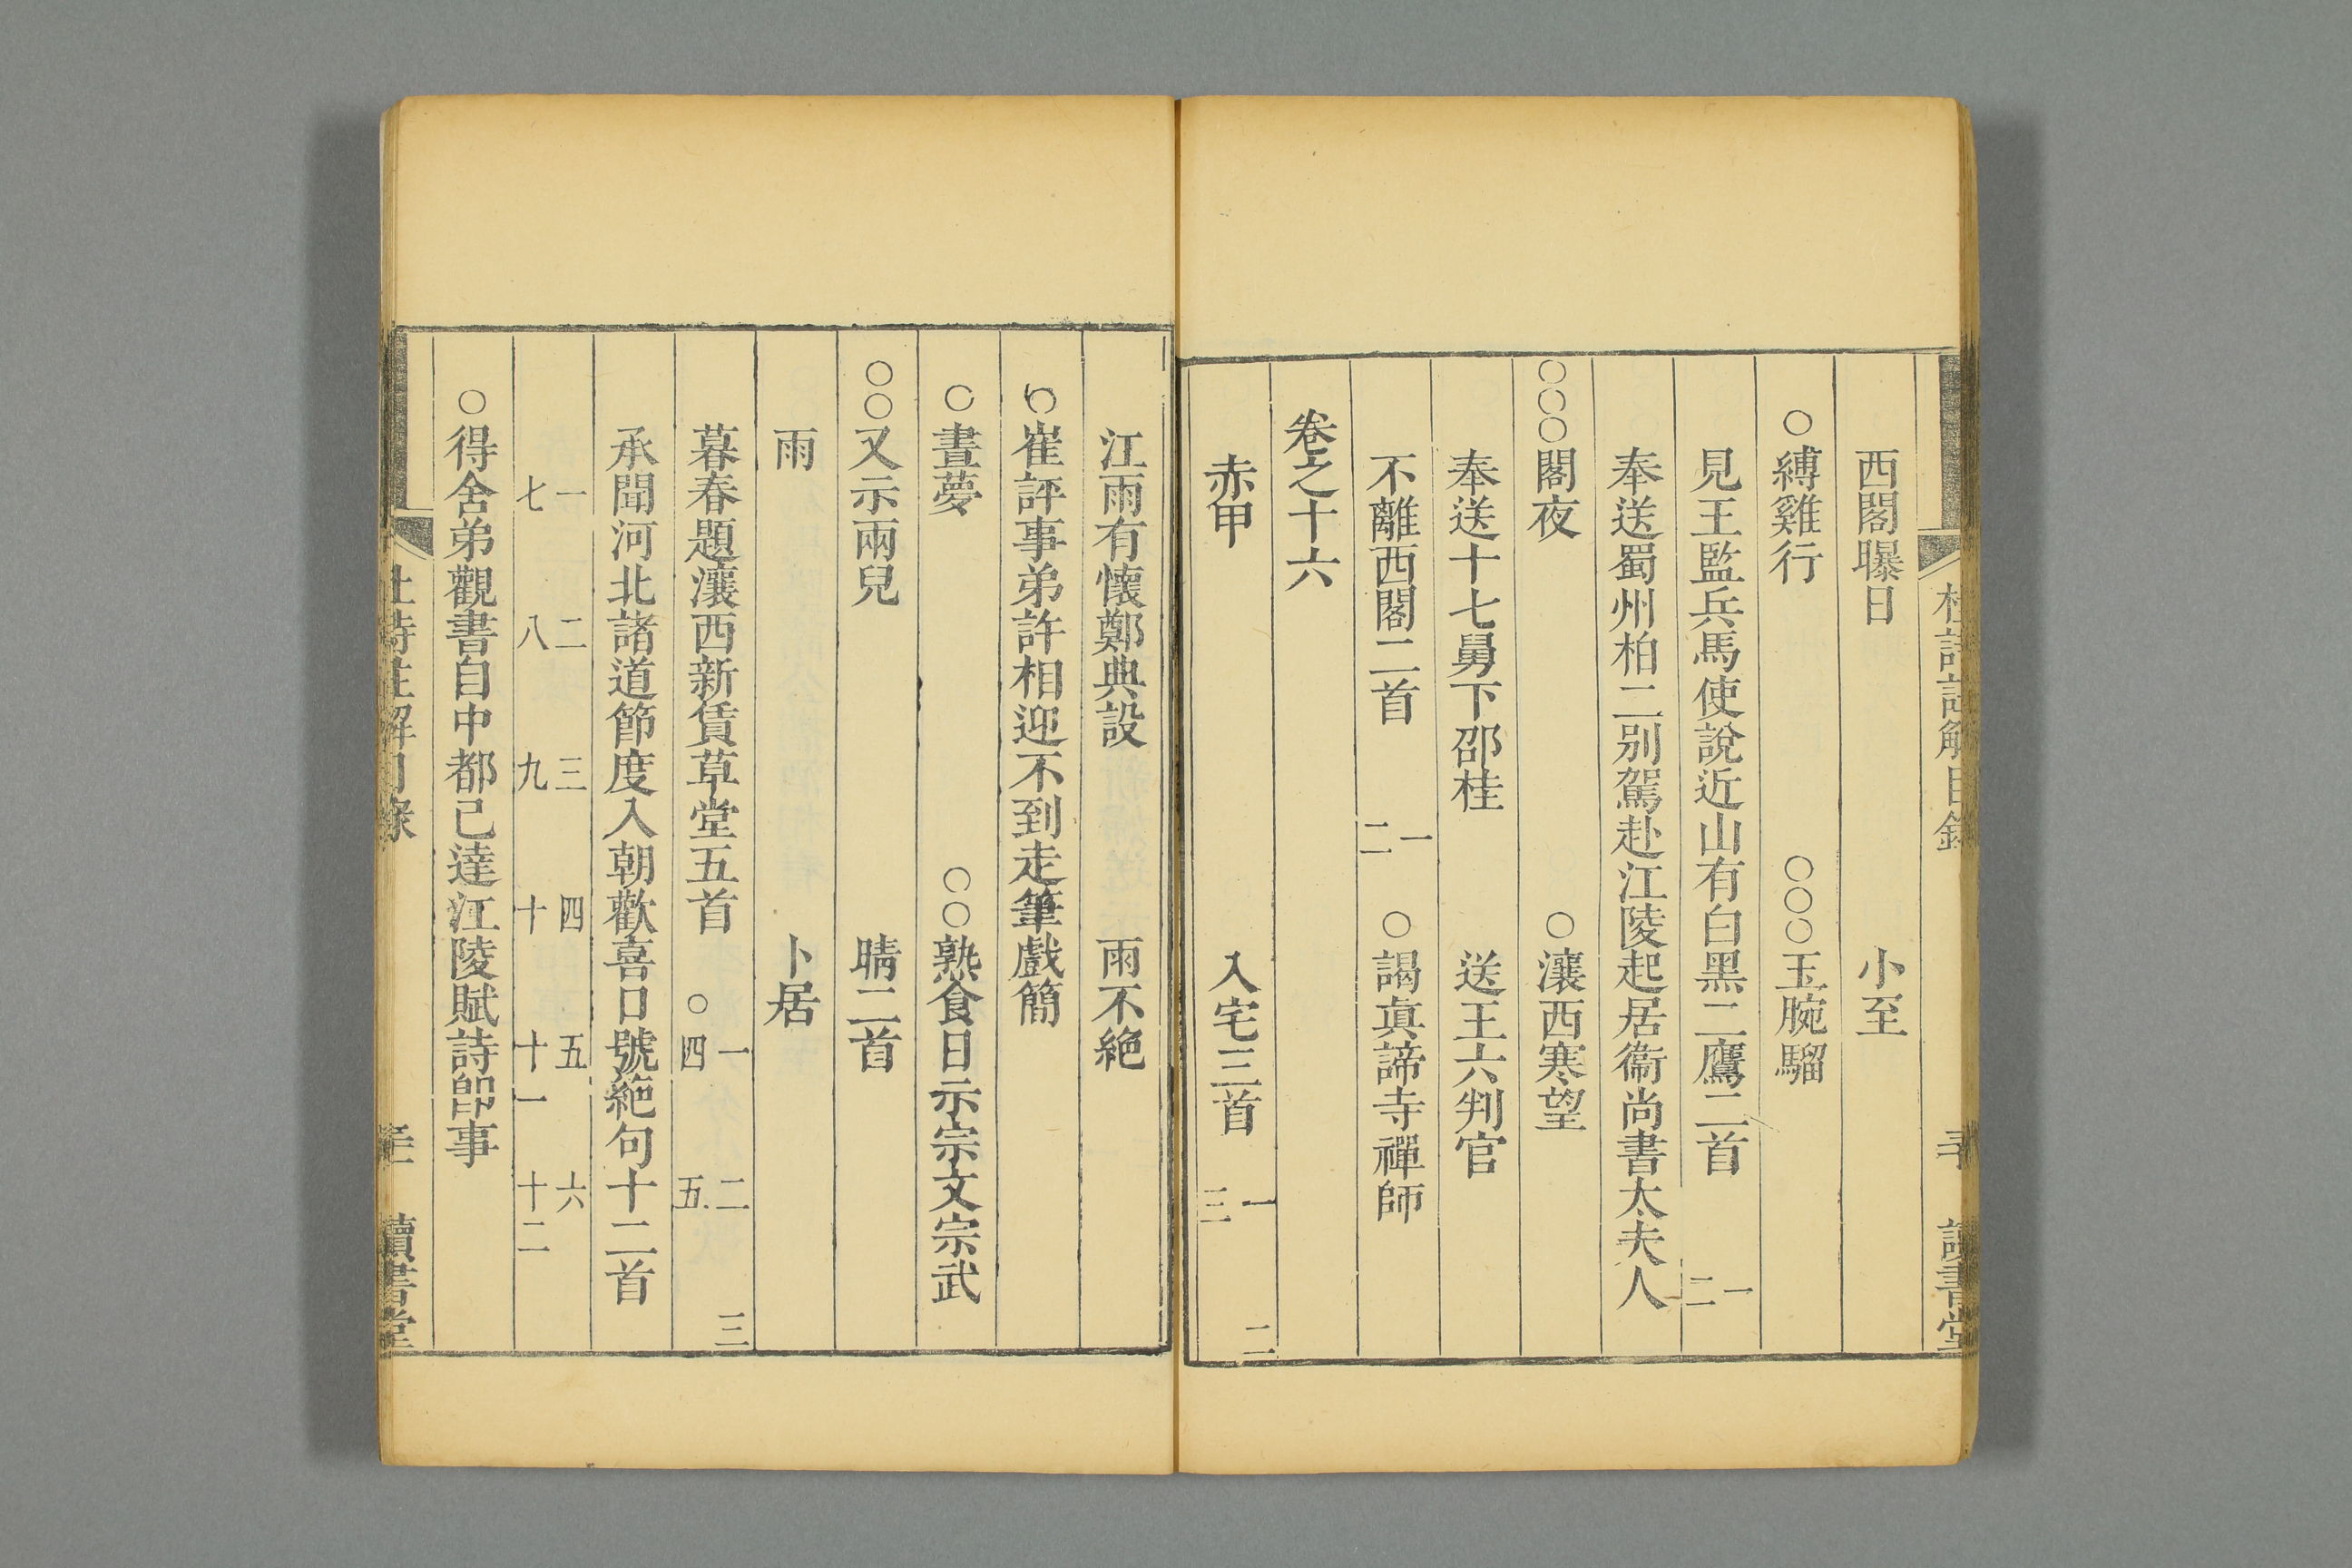 西閣曝日　小至
○縛雞行　○○○玉腕騮
見王監兵馬使說近山有白黑二鷹二首　一　二
奉送蜀州柏二別駕赴江陵起居衞尚書太夫人
○○○閣夜　○瀼西寒望
奉送十七舅下邵桂　送王六判官
不離西閣二首　一　二　○謁眞諦寺禪師
卷之十六
赤甲　入宅三首　一　二　三
讀書堂
江雨有懷鄭典設　雨不絶
○崔評事弟許相迎不到走筆戲簡
○晝夢　○○熟食日示宗文宗武
○○又示兩兒　晴二首
雨　卜居
暮春題瀼西新賃草堂五首　一　二　三　○四　五
承聞河北諸道節度入朝歡喜口號絶句十二首
一　二　三　四　五　六
七　八　九　十　十一　十二
○得舍弟觀書自中都已達江陵賦詩卽事
杜詩註解目錄　讀書堂